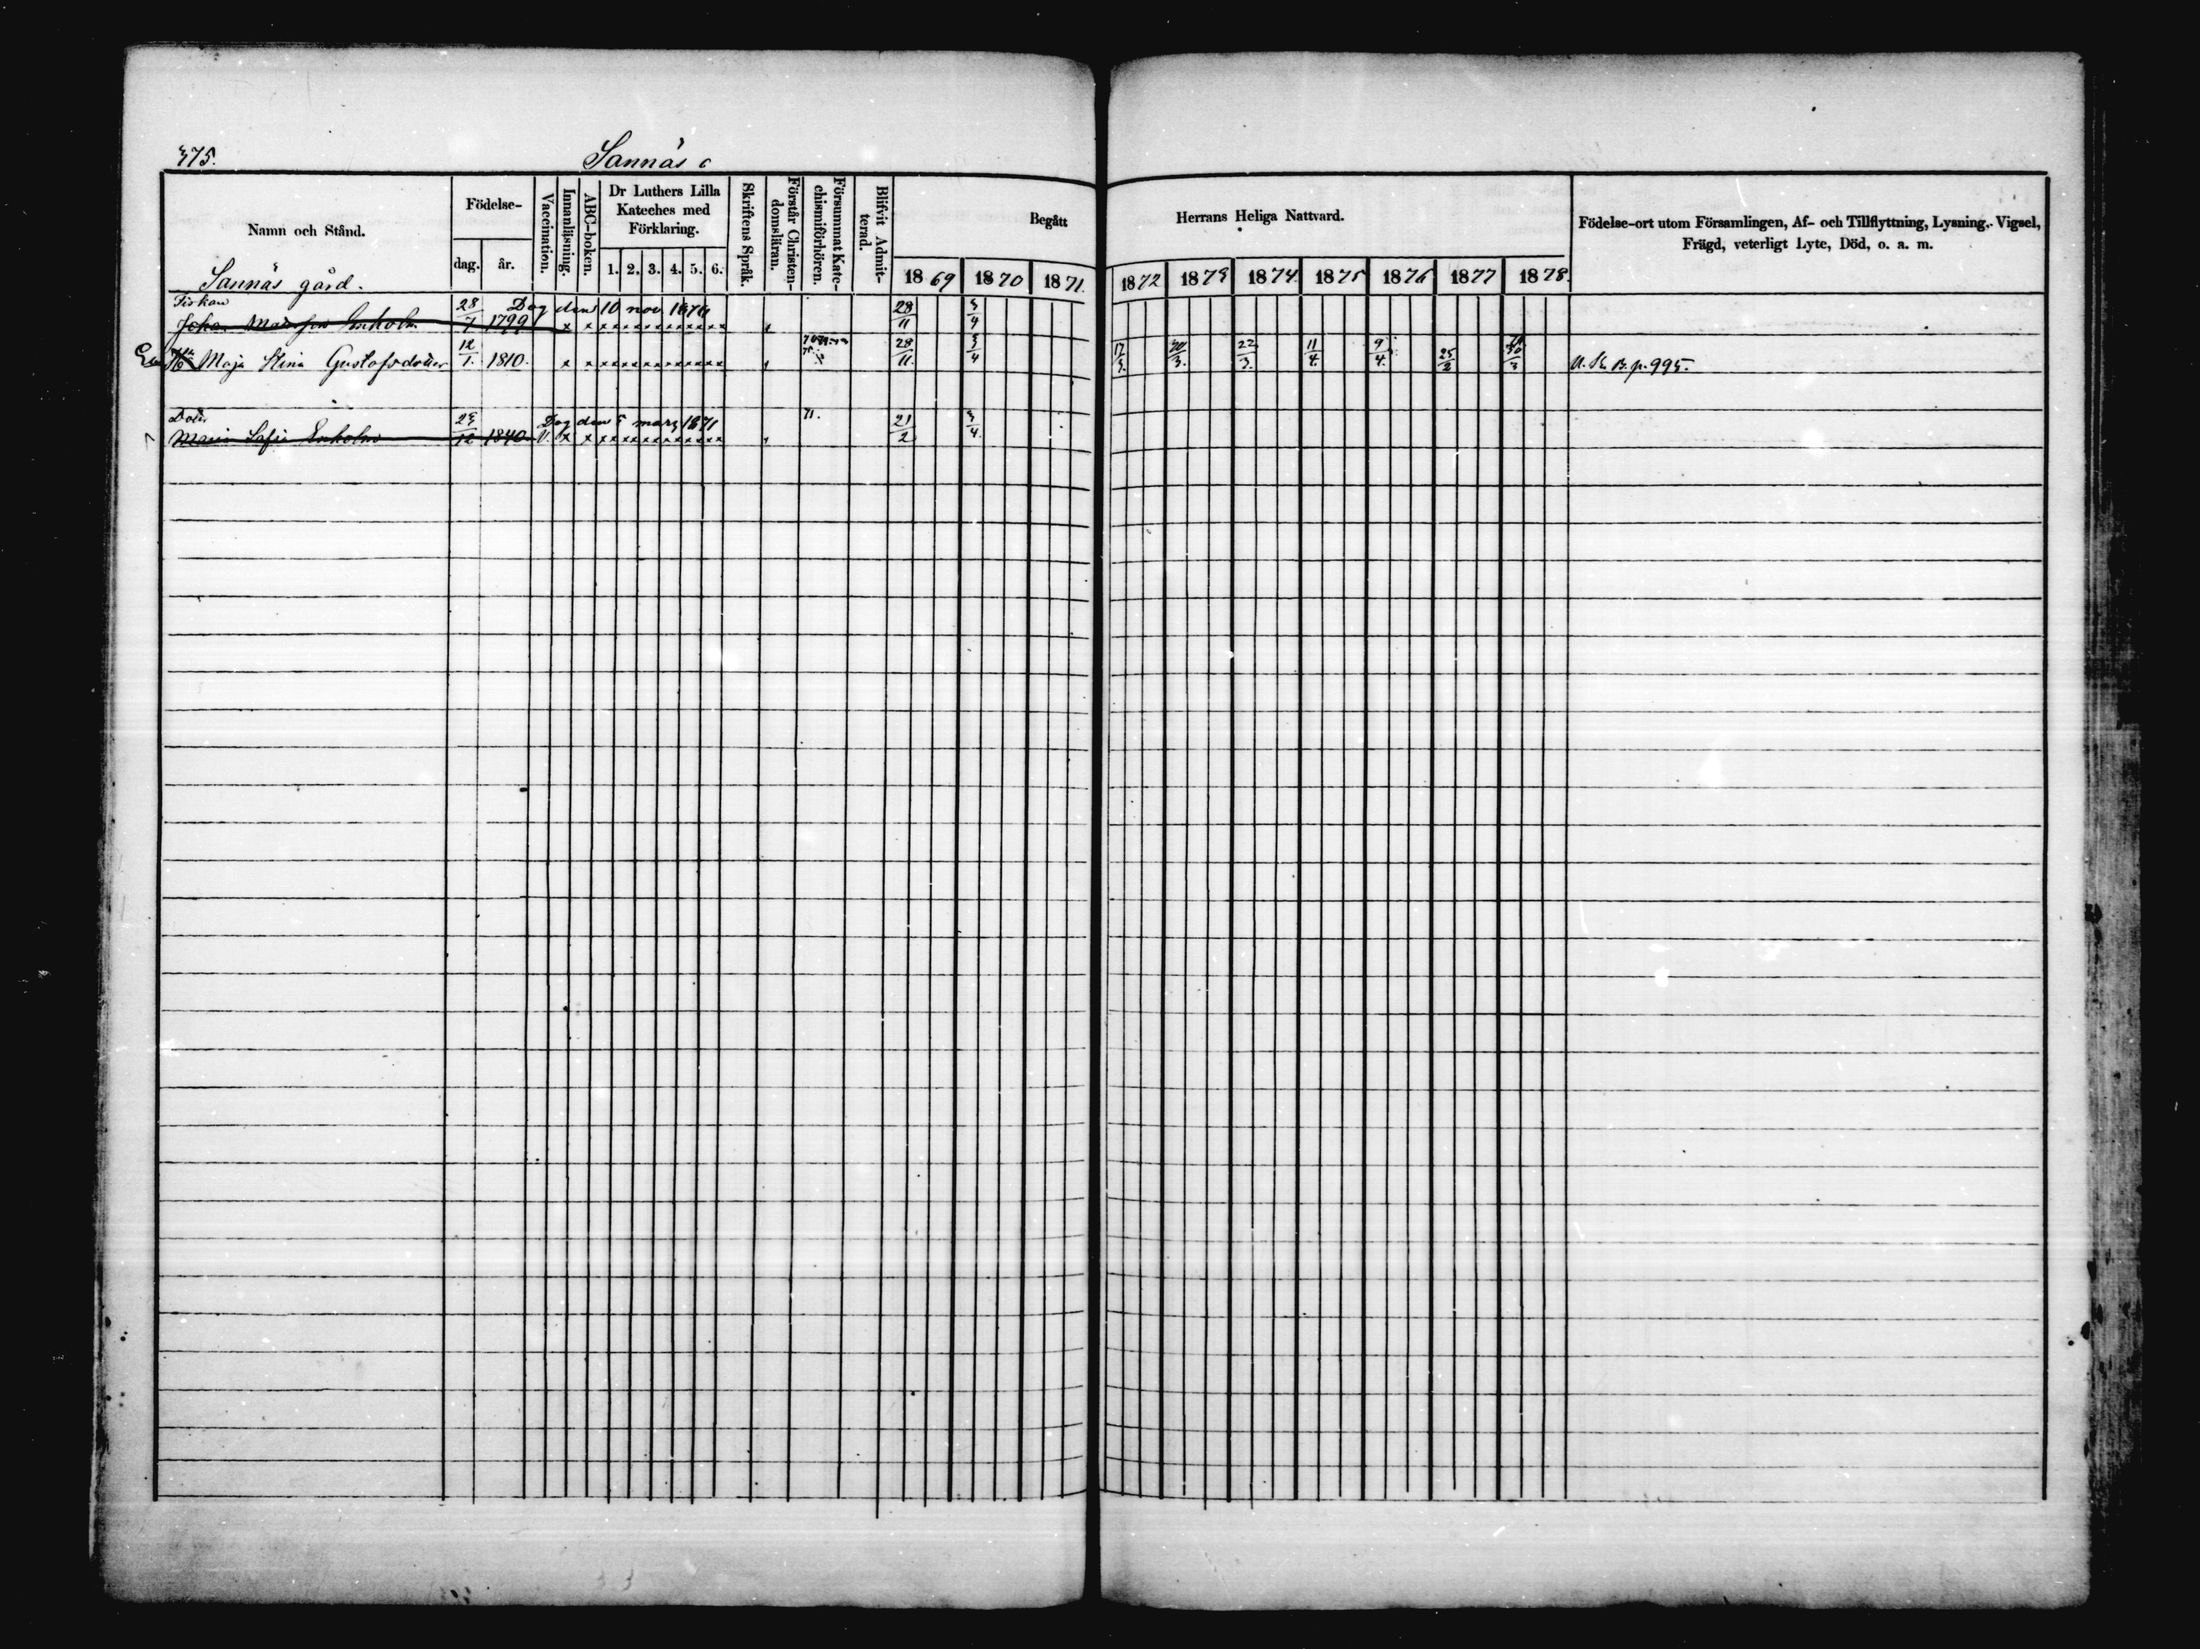 375.
Sannäs
Namn och Stånd.
Födelse-
dag. år.
Vaccination.
Innanläsning.
ABC-boken.
Dr Luthers Lilla
Kateches med
Förklaring.
1. 2. 3. 4. 5. 6.
Skriftens Språk.
Förstår Christen-
domsläran.
Försummat Kate-
chismiförhören.
Blifvit Admit-
terad.
Begått
Herrans Heliga Nattvard.
1869 1870 1871 1872 1873 1874 1875 1876 1877 1878
Födelse-ort utom Församlingen, Af- och Tillflyttning, Lysning, Vigsel,
Frägd, veterligt Lyte, Död, o. a. m.
Sannäs gård.
28/7 1799 Dog den 10 nov. 1876 x x x x x x x x x x x x x x 28/11 3/4
Enholm
Maja Stina Gustafsdotter 12/1. 1810. x x x x x x x x x x x x x x 28/11. 3/4 17/3. 20/3. 22/3. 11/4. 9/4. 25/2 30/3 N. K. B. p. 995.
Dotr
Maria Sofia Enholm 1840 V. Dog den 5 mars 1871 x x x x x x x x x x x x x x 71. 21/2 3/4